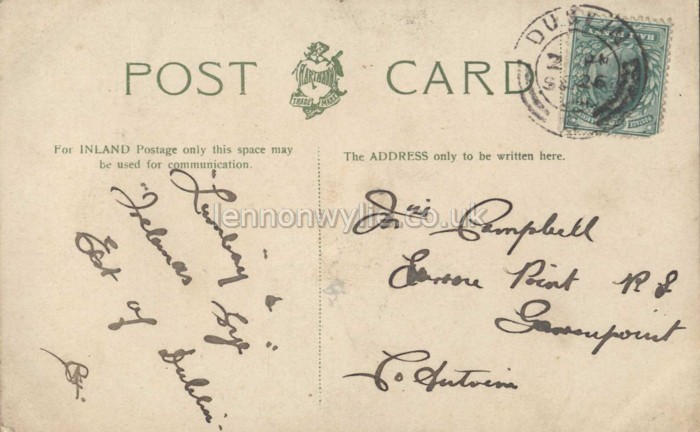 POST CARD
HARTMANN
TRADE MARK
DUBLIN
For INLAND Postage only this space may
be used for communication.
The ADDRESS only to be written here.
"Lambay" &
"Irelands Eye"
East of
Dublin.
Campbell
Point
Co Antrim
lennonwylie.co.uk